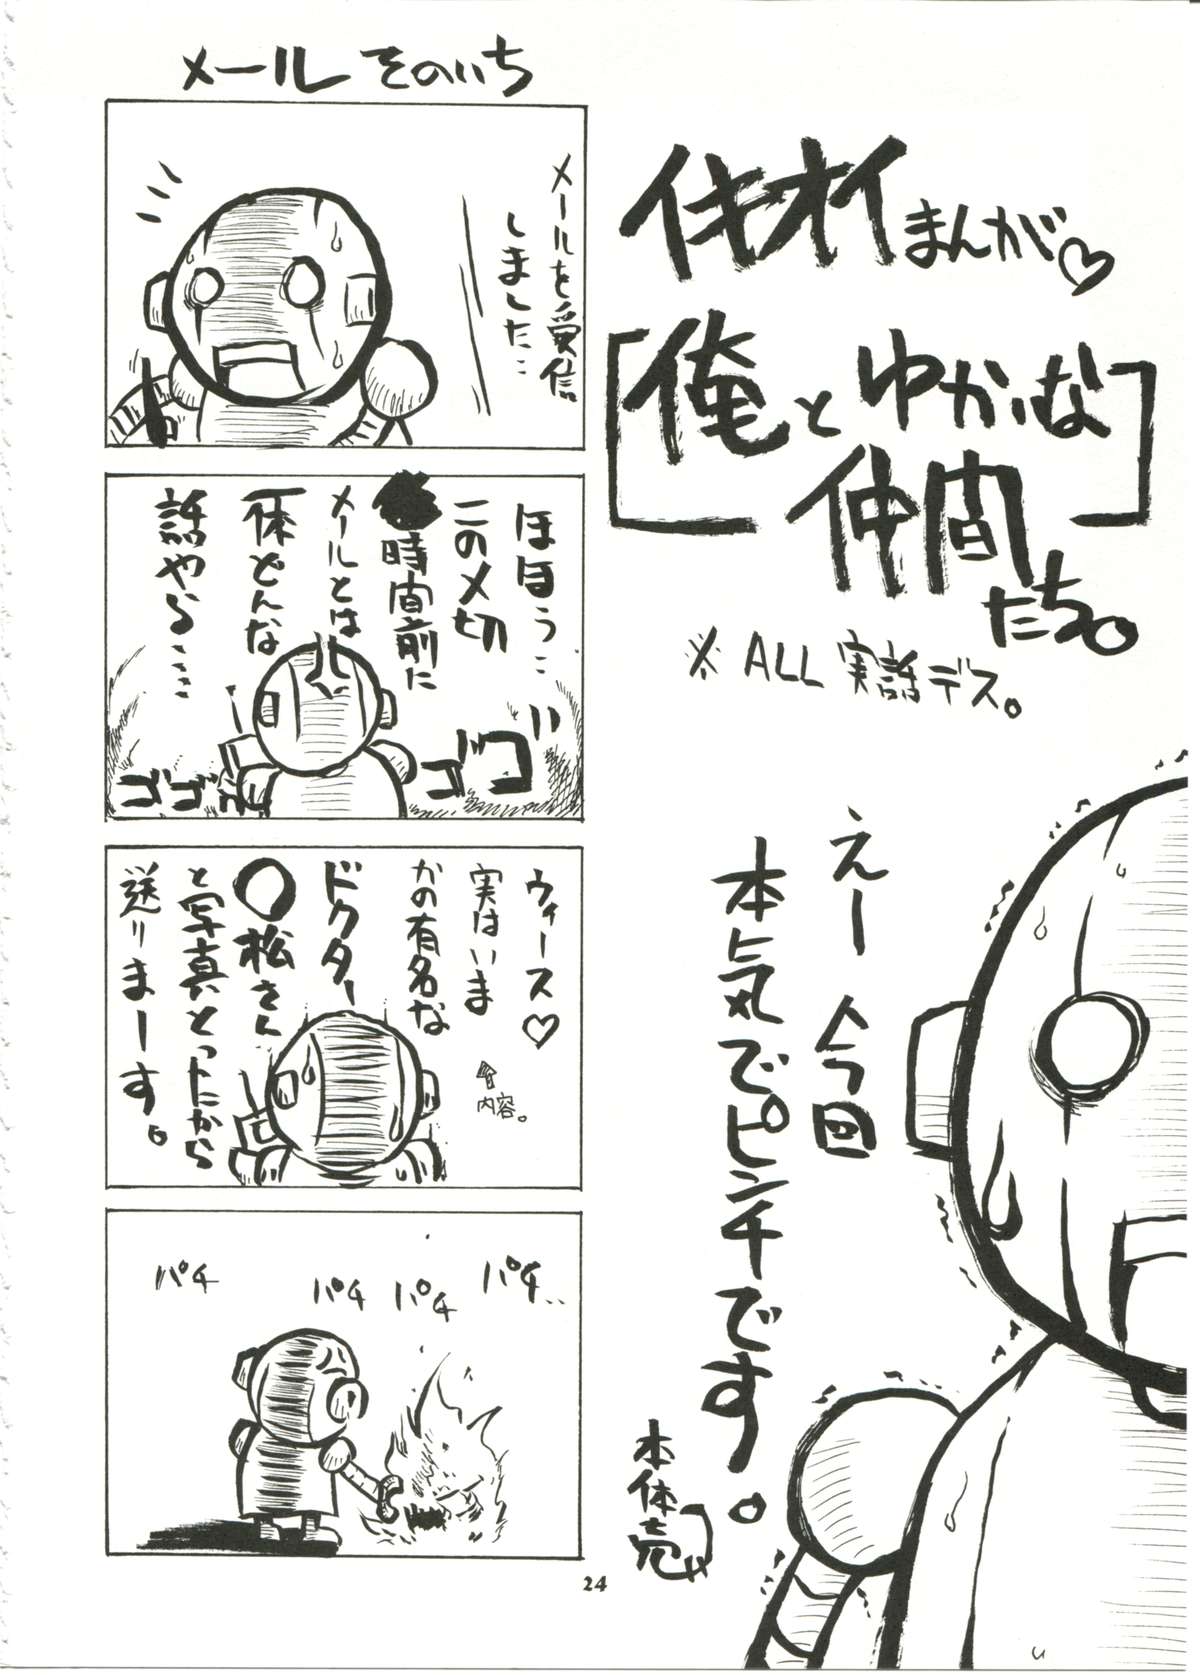 イキオイまんが♡
「俺とゆかいな
仲間
たち。」
※ ALL 実話デス。
えー 今回
本気でピンチです。
本体売
24
メール そのいち
メールを受信
しました‥
ほほう‥
この〆切
時間前に
メールとは
一体どんな
話やら‥‥
ゴゴゴ
ゴゴゴ
ウィース♡
実はいま
かの有名な
ドクター
◯松さん
と写真とったから
送りまーす。
内容。
パチ
パチ
パチ
パチ‥